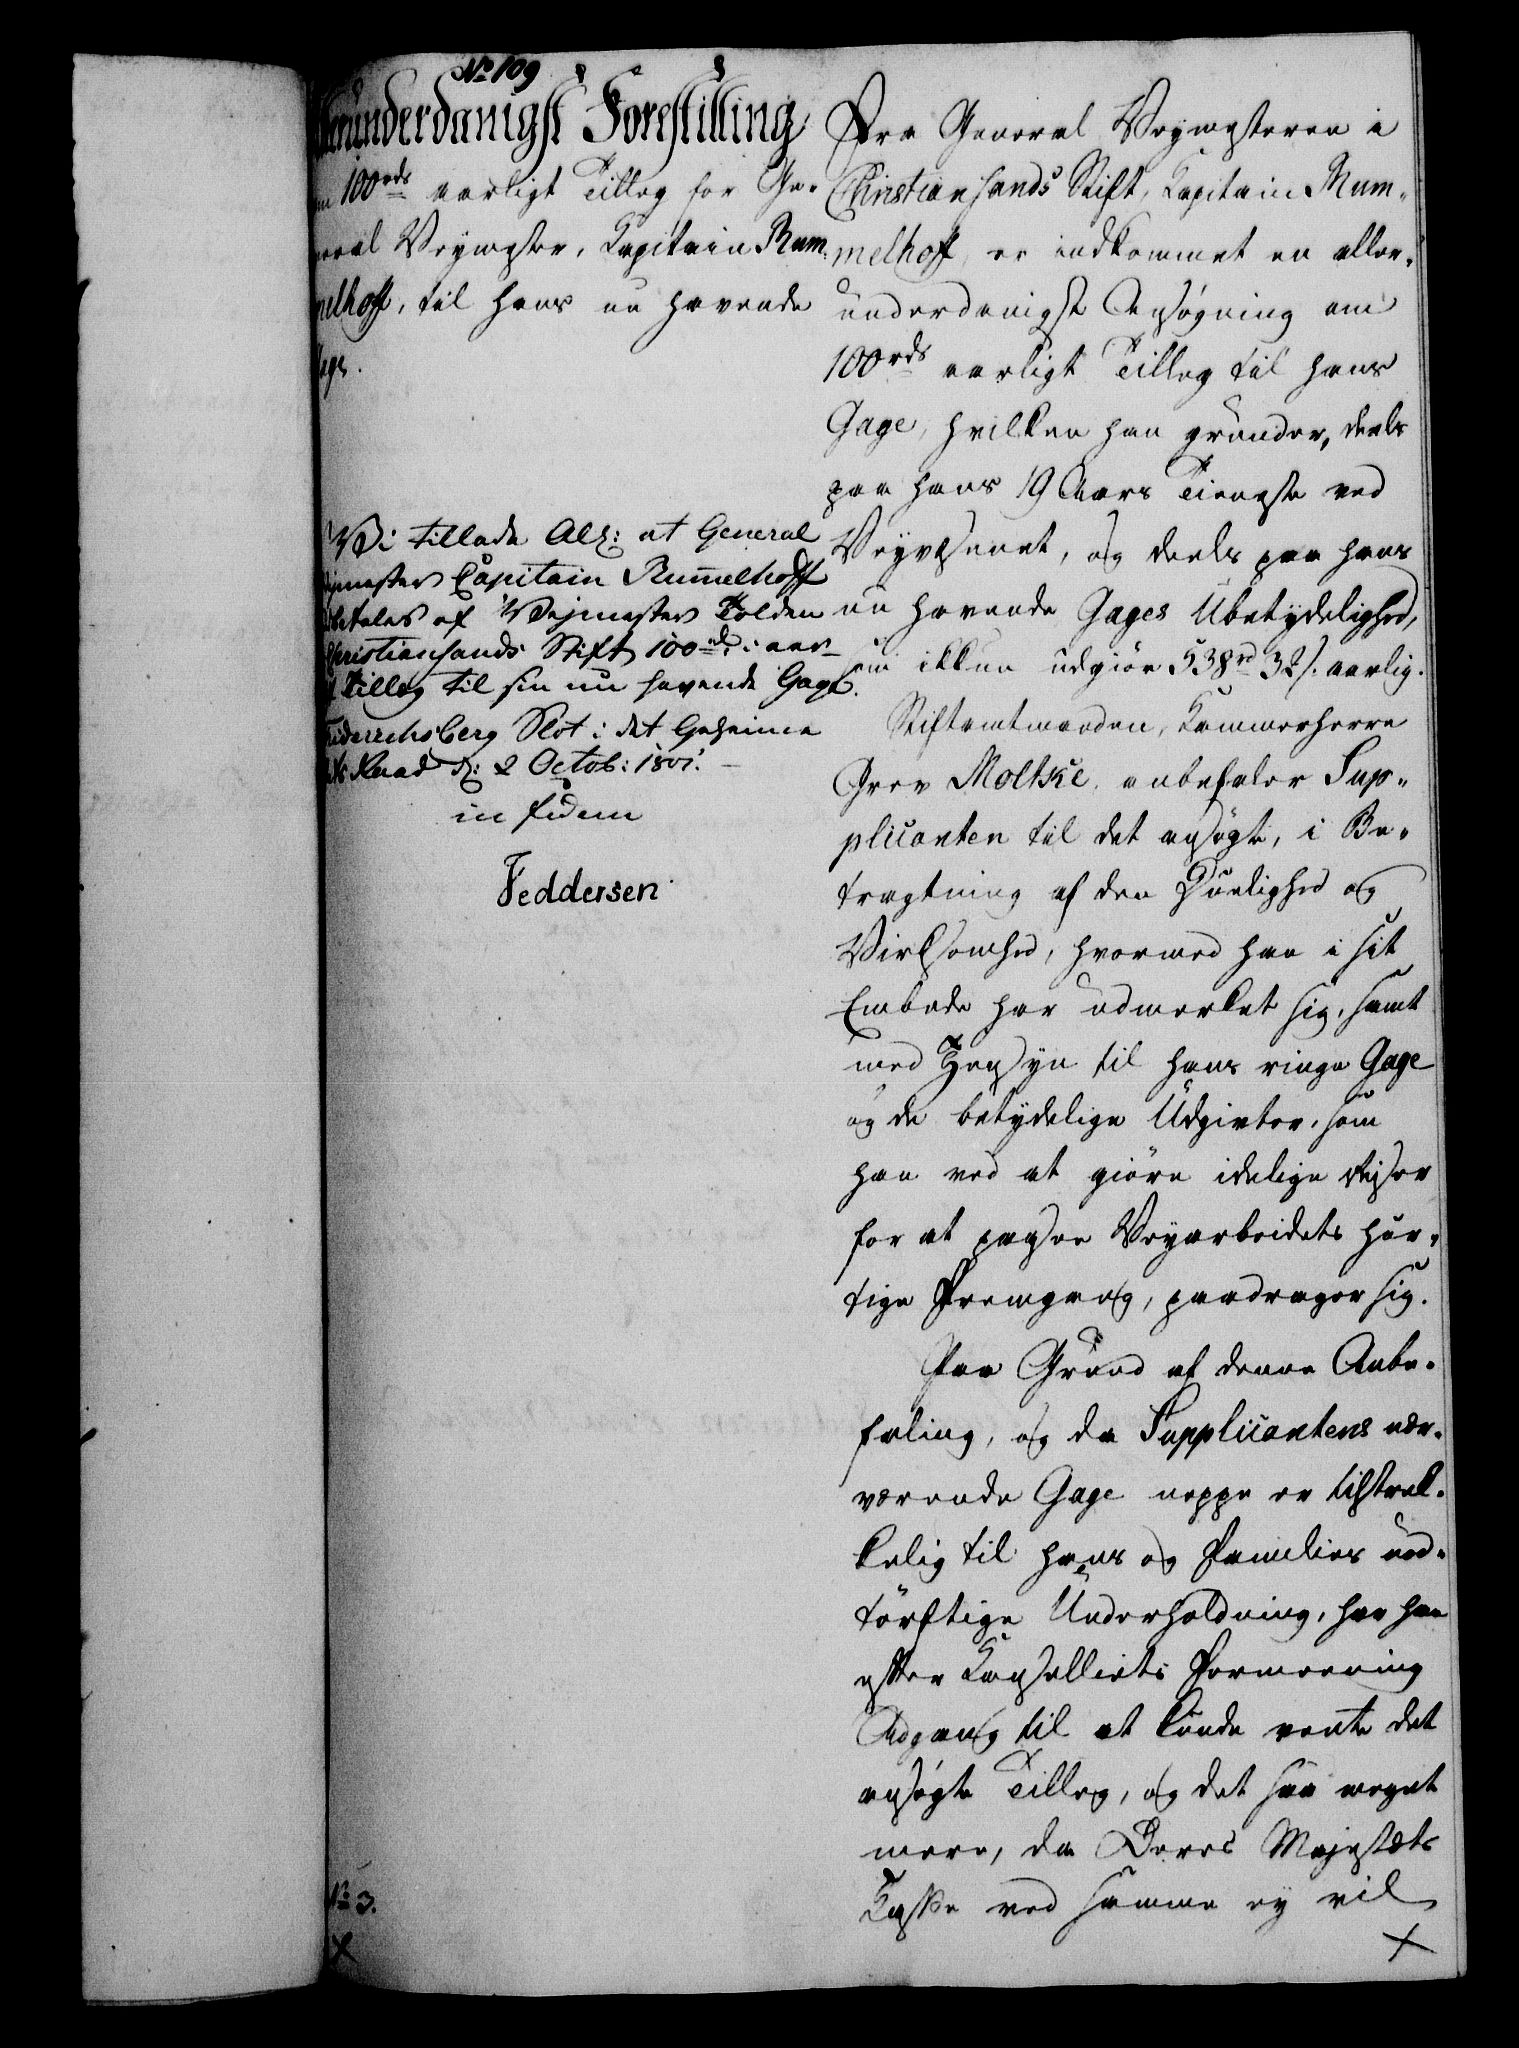 No 109
underdanigst Forestilling
100rds aarligt Tillæg for Ge-
neral Veymester, Capitain Rum-
melhoff, til hans nu havende
Gage.
Vi tillade All: at General
Vejmester Capitain Rum̄elhoff
betales af Vejmester Tolden
Christiansands Stift 100rd: aar-
Tillæg til sin nu havende Gage.
Friderichsberg Slot i det Geheime
Raad d: 2 Octob: 1801.
in fidem
Feddersen
No 3.
Fra General Veymesteren i
Christiansands Stift, Capitain Rum-
melhoff, er indkommet en aller-
underdanigst Ansøgning om
100rds aarligt Tillæg til hans
Gage, hvilken han grunder, deels
paa hans 19 Aars Tieneste ved
Veyvæsenet, og deels paa hans
nu havende Gages Ubetydelighed,
som ikkun udgiør 538rd 32 s. aarlig.
Stiftamtmanden, Kammerherre
Grev Moltke, anbefaler Sup-
plicanten til det ansøgte, i Be-
tragtning af den Duelighed og
Virksomhed, hvormed han i sit
Embede har udmerket sig, samt
med Hensyn til hans ringe Gage
og de betydelige Udgivter, som
han ved at giöre idelige Reyser
for at paasee Veyarbeidets hur-
tige Fremgang, paadrager sig.
Paa Grund af denne Anbe-
faling, og da Supplicantens nær-
værende Gage neppe er tilstræk-
kelig til hans og Families nød-
törftige Underholdning, har han
efter Cancelliets Formeening
Adgang til at kunde vente det
ansøgte Tillæg, og det saa meget
mere, da Deres Majestæts
Kasse ved samme ey vil